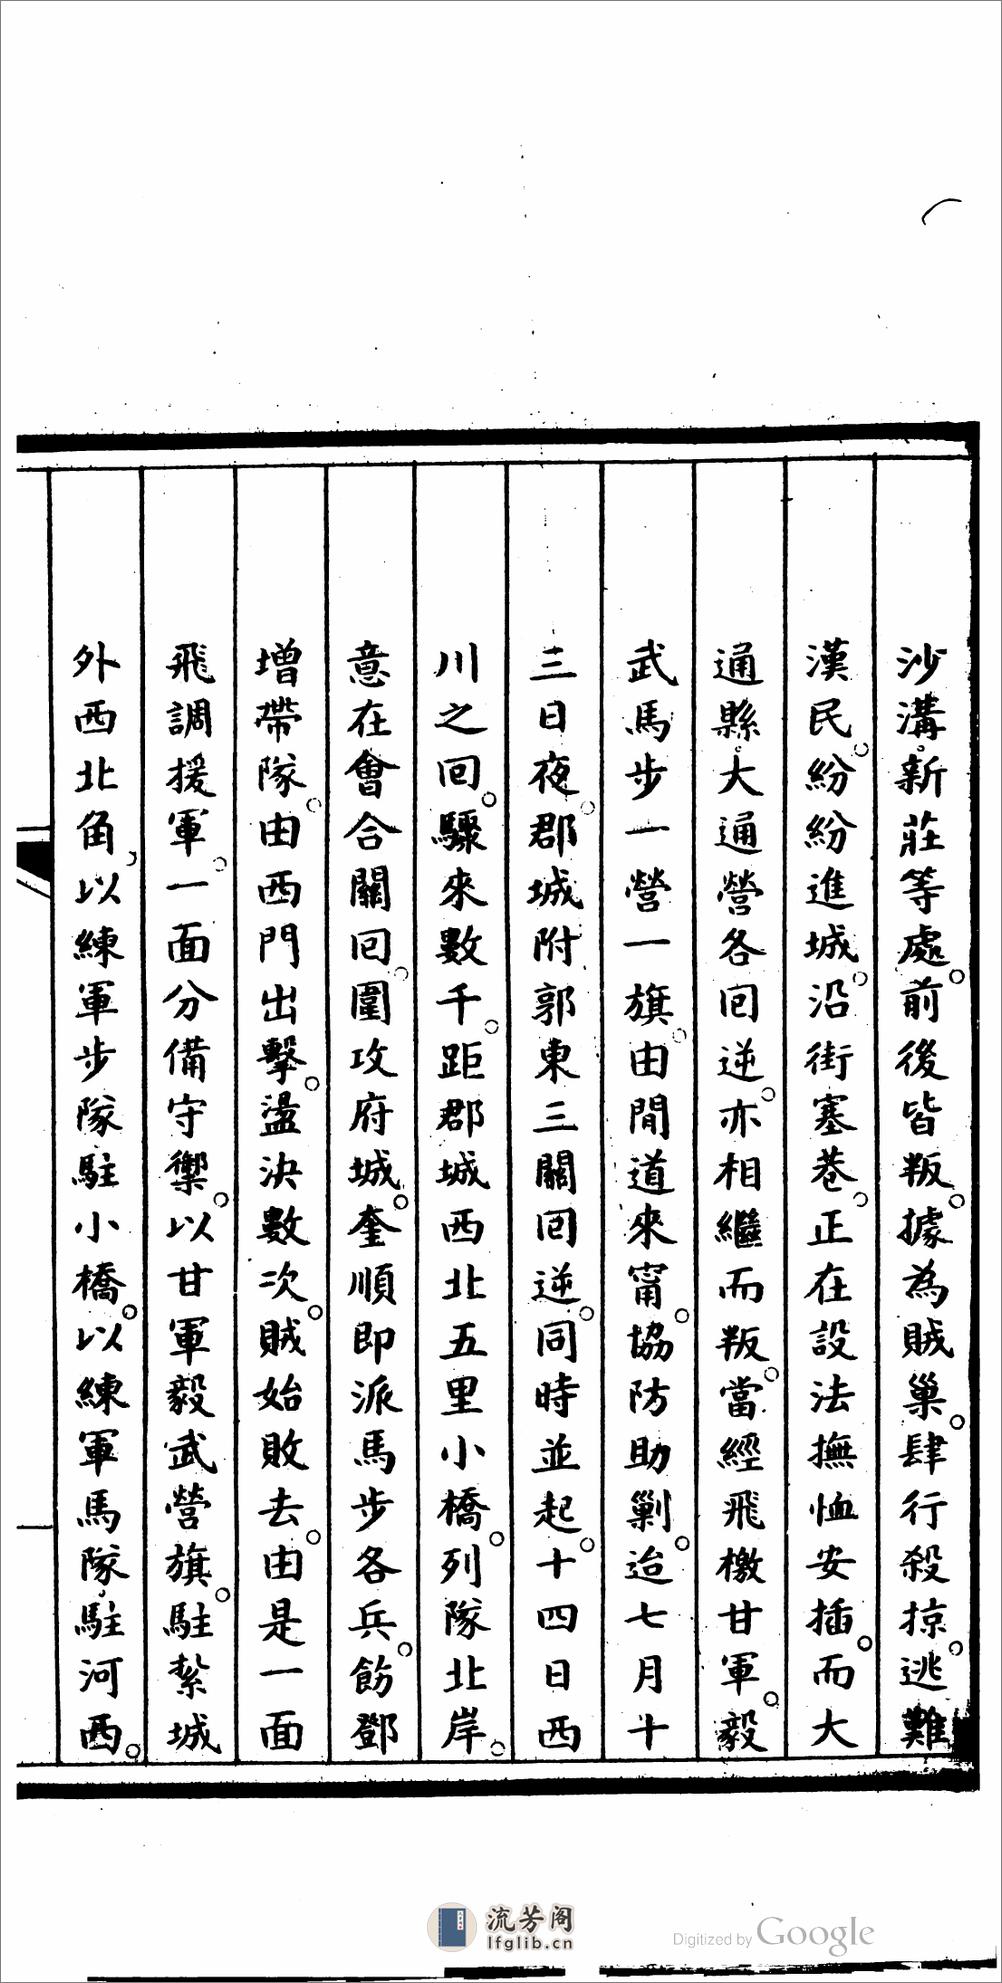 沙溝新莊等處。前後皆叛。據為賊巢。肆行殺掠。逃難
漢民。紛紛進城。沿街塞巷。正在設法撫恤安插。而大
通縣。大通營各回逆。亦相繼而叛。當經飛檄甘軍。毅
武馬步一營一旗。由閒道來甯。協防助剿。迨七月十
三日夜。郡城附郭東三關回逆。同時並起。十四日西
川之回。驟來數千。距郡城西北五里小橋。列隊北岸。
意在會合關回。圍攻府城。奎順即派馬步各兵。飭鄧
增帶隊。由西門出擊。盪決數次。賊始敗去。由是一面
飛調援軍。一面分備守禦。以甘軍毅武營旗。駐紮城
外西北角。以練軍步隊駐小橋。以練軍馬隊。駐河西。
流芳阁
lfglib.cn
Digitized by Google